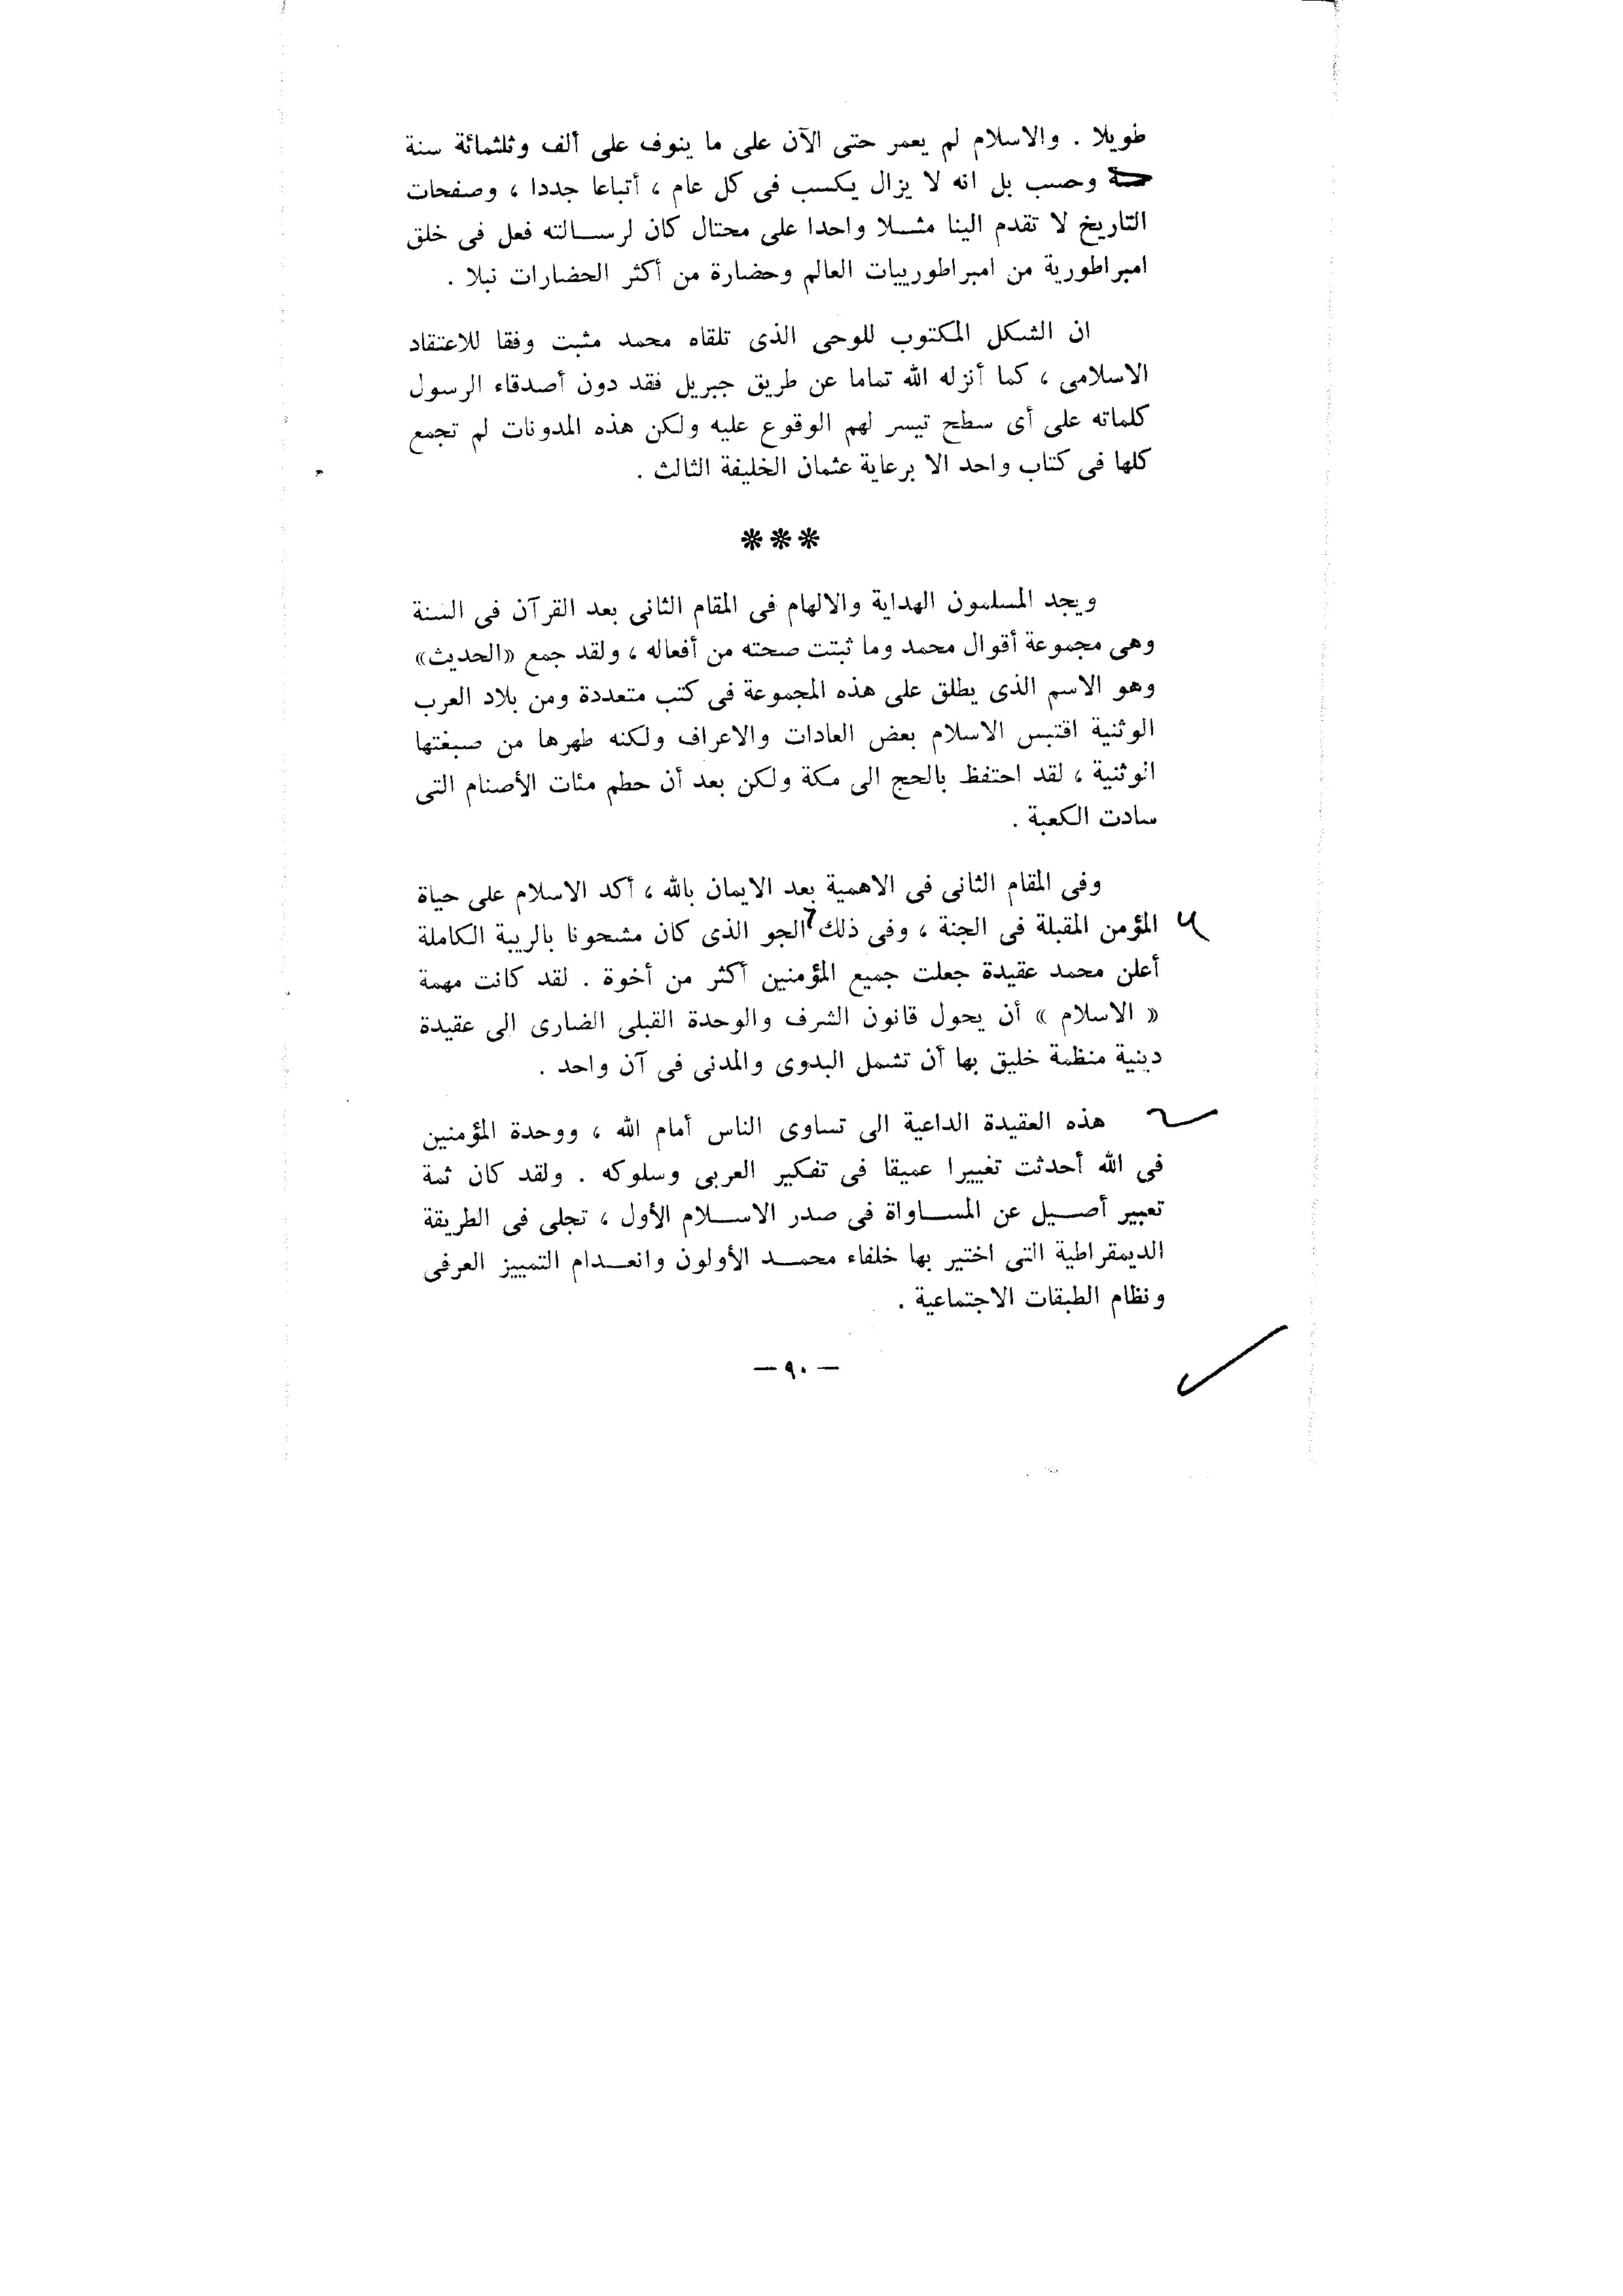 طويلا . والاسلام لم يعمر حتى الآن على ما ينوف على ألف وثلثمائة سنة
وحسب بل انه لا يزال يكسب فى كل عام ، أتباعا جددا ، وصفحات
التاريخ لا تقدم الينا مثــلا واحدا على محتال كان لرســالته فعل فى خلق
امبراطورية من امبراطورييات العالم وحضارة من أكثر الحضارات نبلا .
ان الشكل المكتوب للوحى الذى تلقاه محمد مثبت وفقا للاعتقاد
الاسلامى ، كما أنزله الله تماما عن طريق جبريل فقد دون أصدقاء الرسول
كلماته على أى سطح تيسر لهم الوقوع عليه ولكن هذه المدونات لم تجمع
كلها فى كتاب واحد الا برعاية عثمان الخليفة الثالث .
***
ويجد المسلمون الهداية والالهام فى المقام الثانى بعد القرآن فى السنة
وهى مجموعة أقوال محمد وما ثبتت صحته من أفعاله ، ولقد جمع «الحديث»
وهو الاسم الذى يطلق على هذه المجموعة فى كتب متعددة ومن بلاد العرب
الوثنية اقتبس الاسلام بعض العادات والاعراف ولكنه طهرها من صبغتها
الوثنية ، لقد احتفظ بالحج الى مكة ولكن بعد أن حطم مئات الأصنام التى
سادت الكعبة .
وفى المقام الثانى فى الاهمية بعد الايمان بالله ، أكد الاسلام على حياة
المؤمن المقبلة فى الجنة ، وفى ذلك الجو الذى كان مشحونا بالريبة الكاملة
أعلن محمد عقيدة جعلت جميع المؤمنين أكثر من أخوة . لقد كانت مهمة
« الاسلام » أن يحول قانون الشرف والوحدة القبلى الضارى الى عقيدة
دينية منظمة خليق بها أن تشمل البدوى والمدنى فى آن واحد .
هذه العقيدة الداعية الى تساوى الناس أمام الله ، ووحدة المؤمنين
فى الله أحدثت تغييرا عميقا فى تفكير العربى وسلوكه . ولقد كان ثمة
تعبير أصــيل عن المســاواة فى صدر الاســلام الأول ، تجلى فى الطريقة
الديمقراطية التى اختير بها خلفاء محمــد الأولون وانعــدام التمييز العرفى
ونظام الطبقات الاجتماعية .
— ٩٠ —